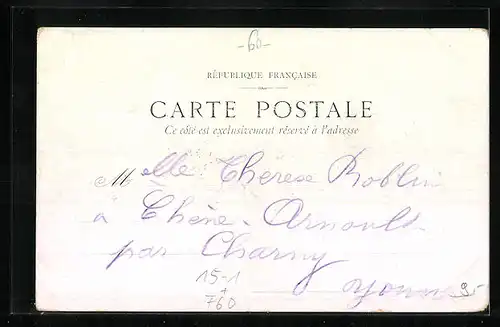 -60-
RÉPUBLIQUE FRANÇAISE
CARTE POSTALE
Ce côté est exclusivement réservé à l'adresse
Melle Thérèse Roblin
à Chêne-Arnoult
par Charny
Yonne
15-1
+
760
95